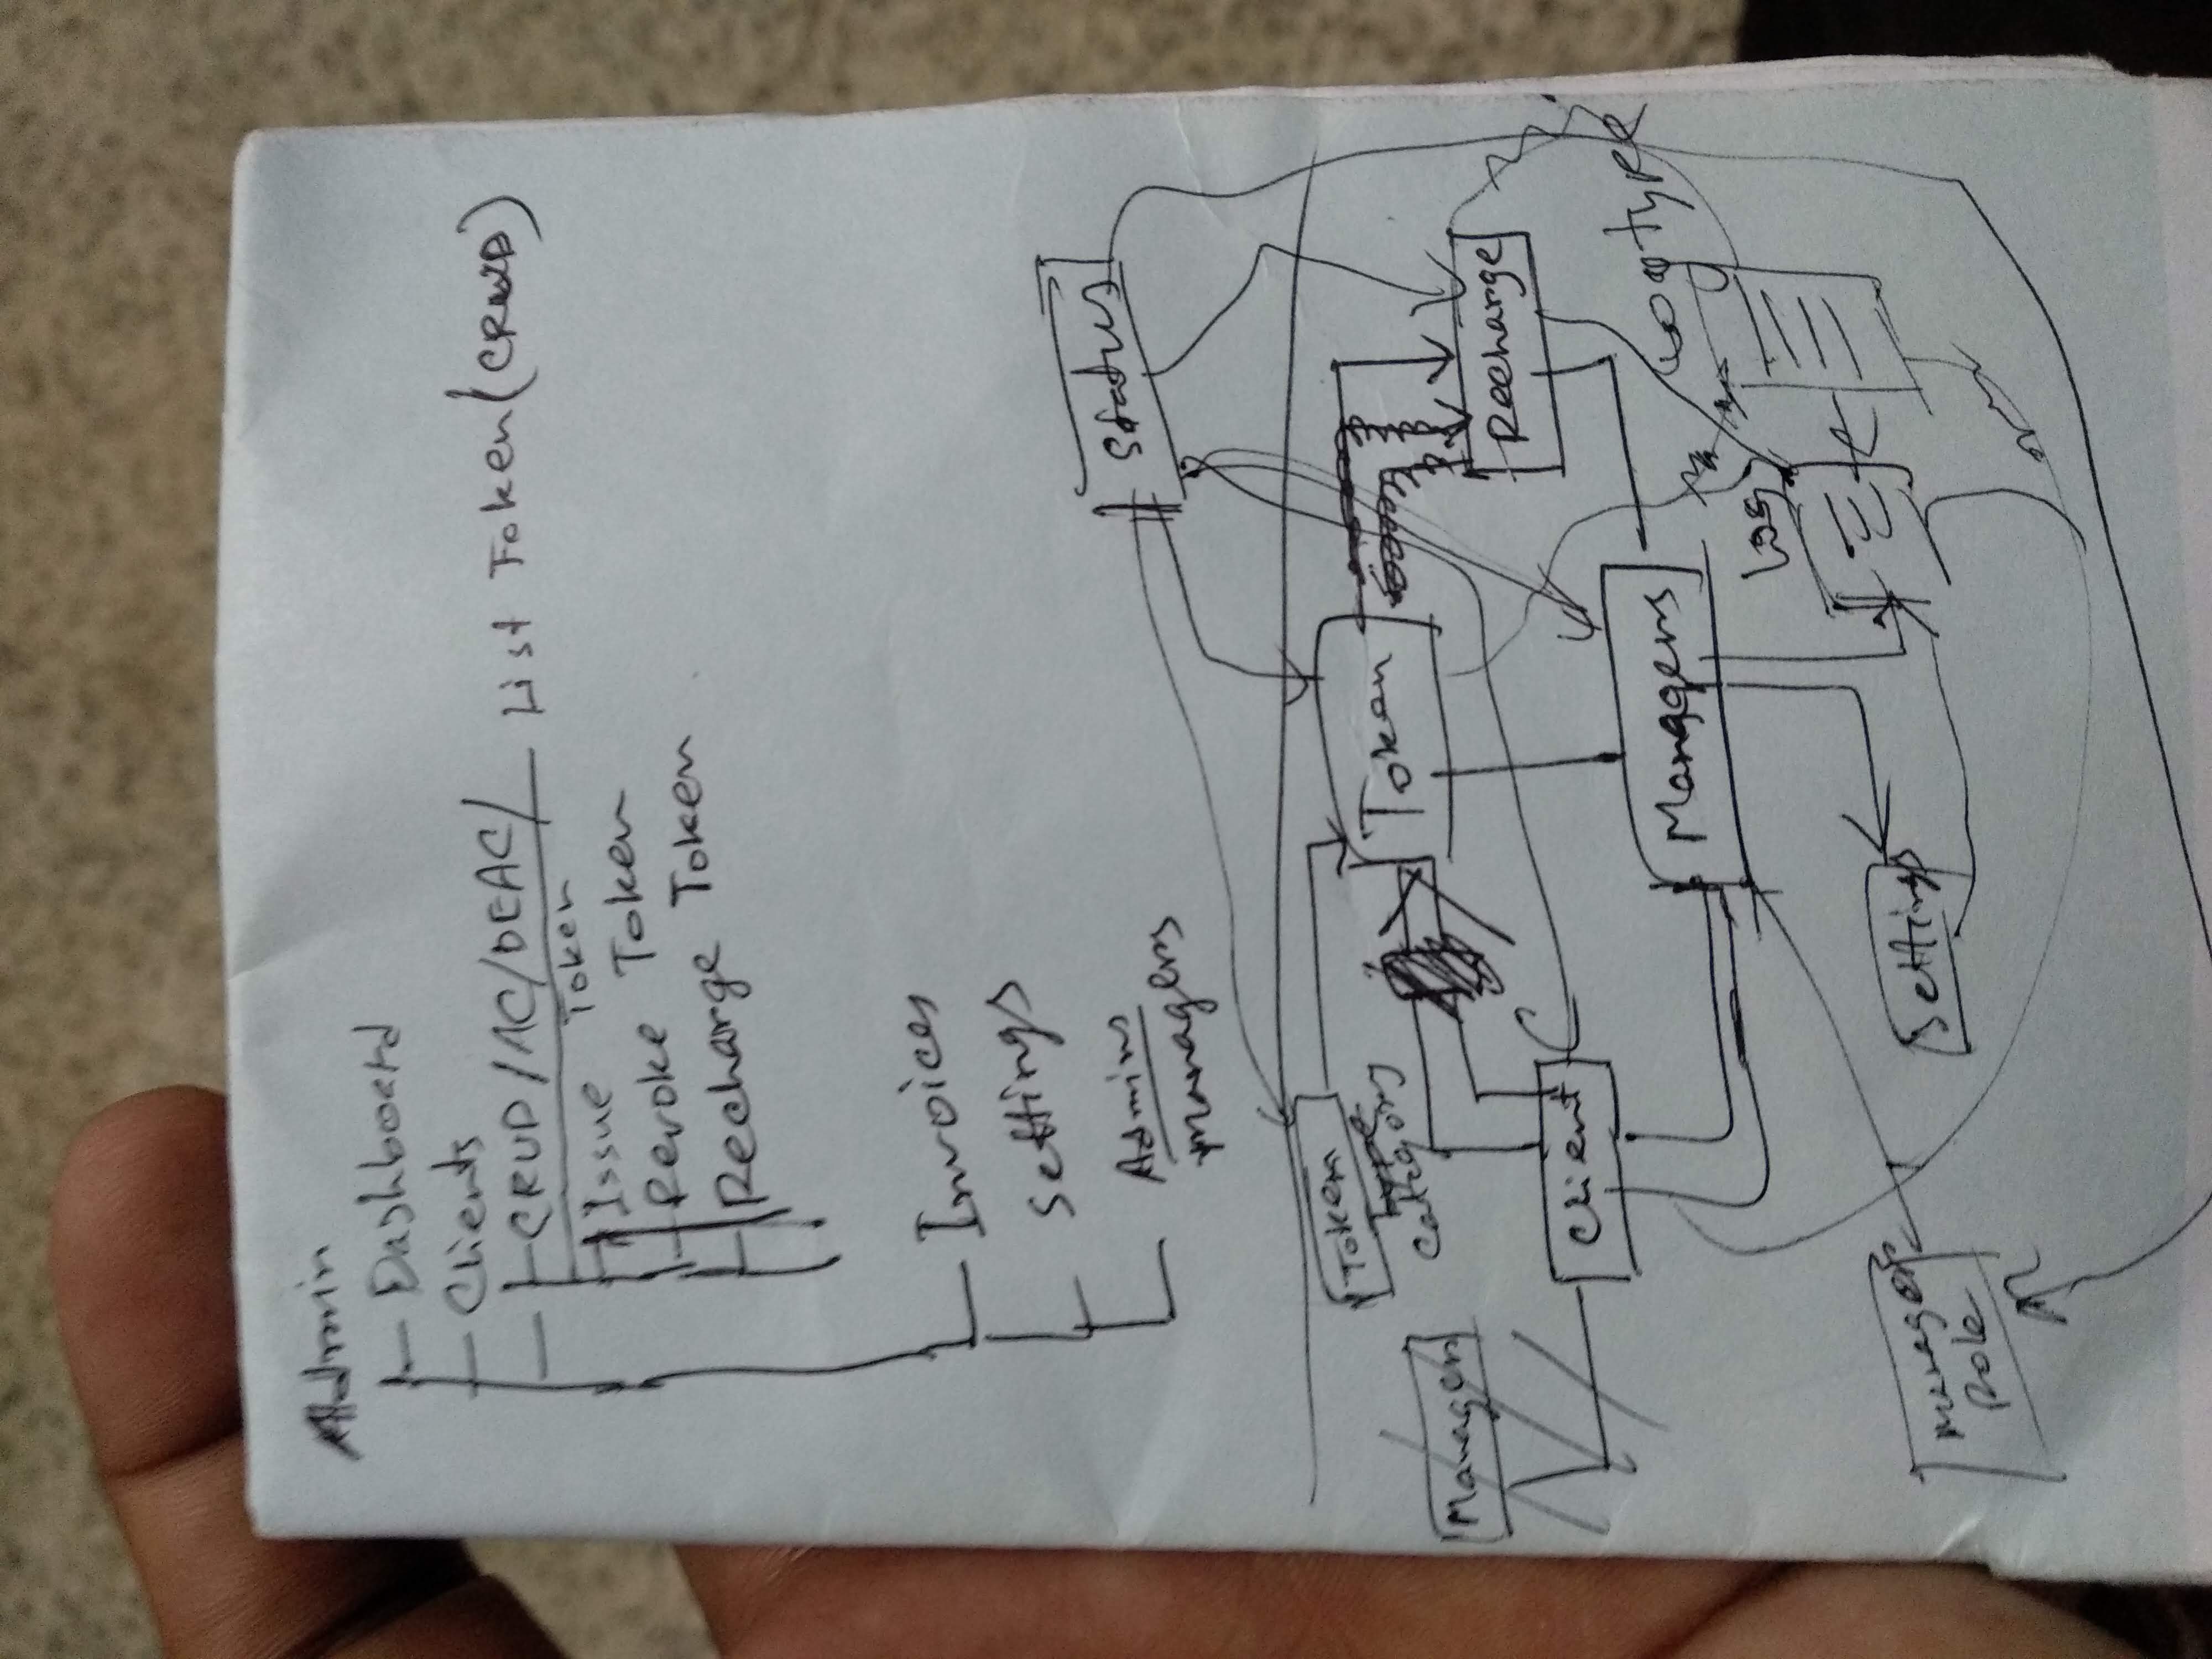 Admin
Dashboard
Clients
CRUD/AC/DEAC/ List Token (CRUD)
Issue Token
Revoke Token
Recharge Token
Invoices
Settings
Admins
Managers
Status
Token
Type
Category
Token
Managers
Recharge
Client
Log type
Managers
Log
Manager
Role
Settings